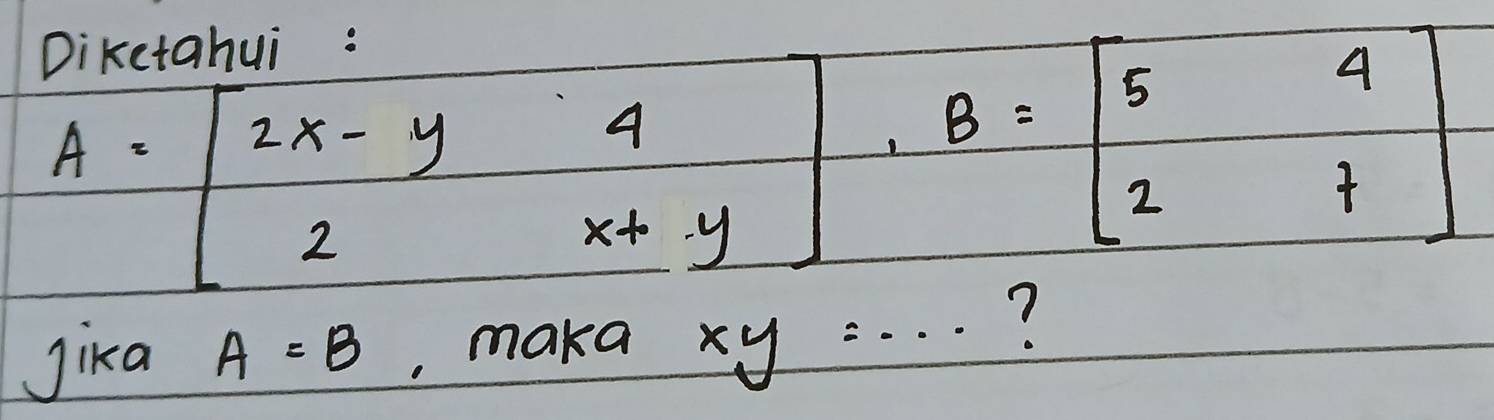 Diketahui :
A = [ 2x - y 4 ] , B = [ 5 4 ]
[ 2 x + y ] [ 2 7 ]
Jika A = B , maka xy = .... ?